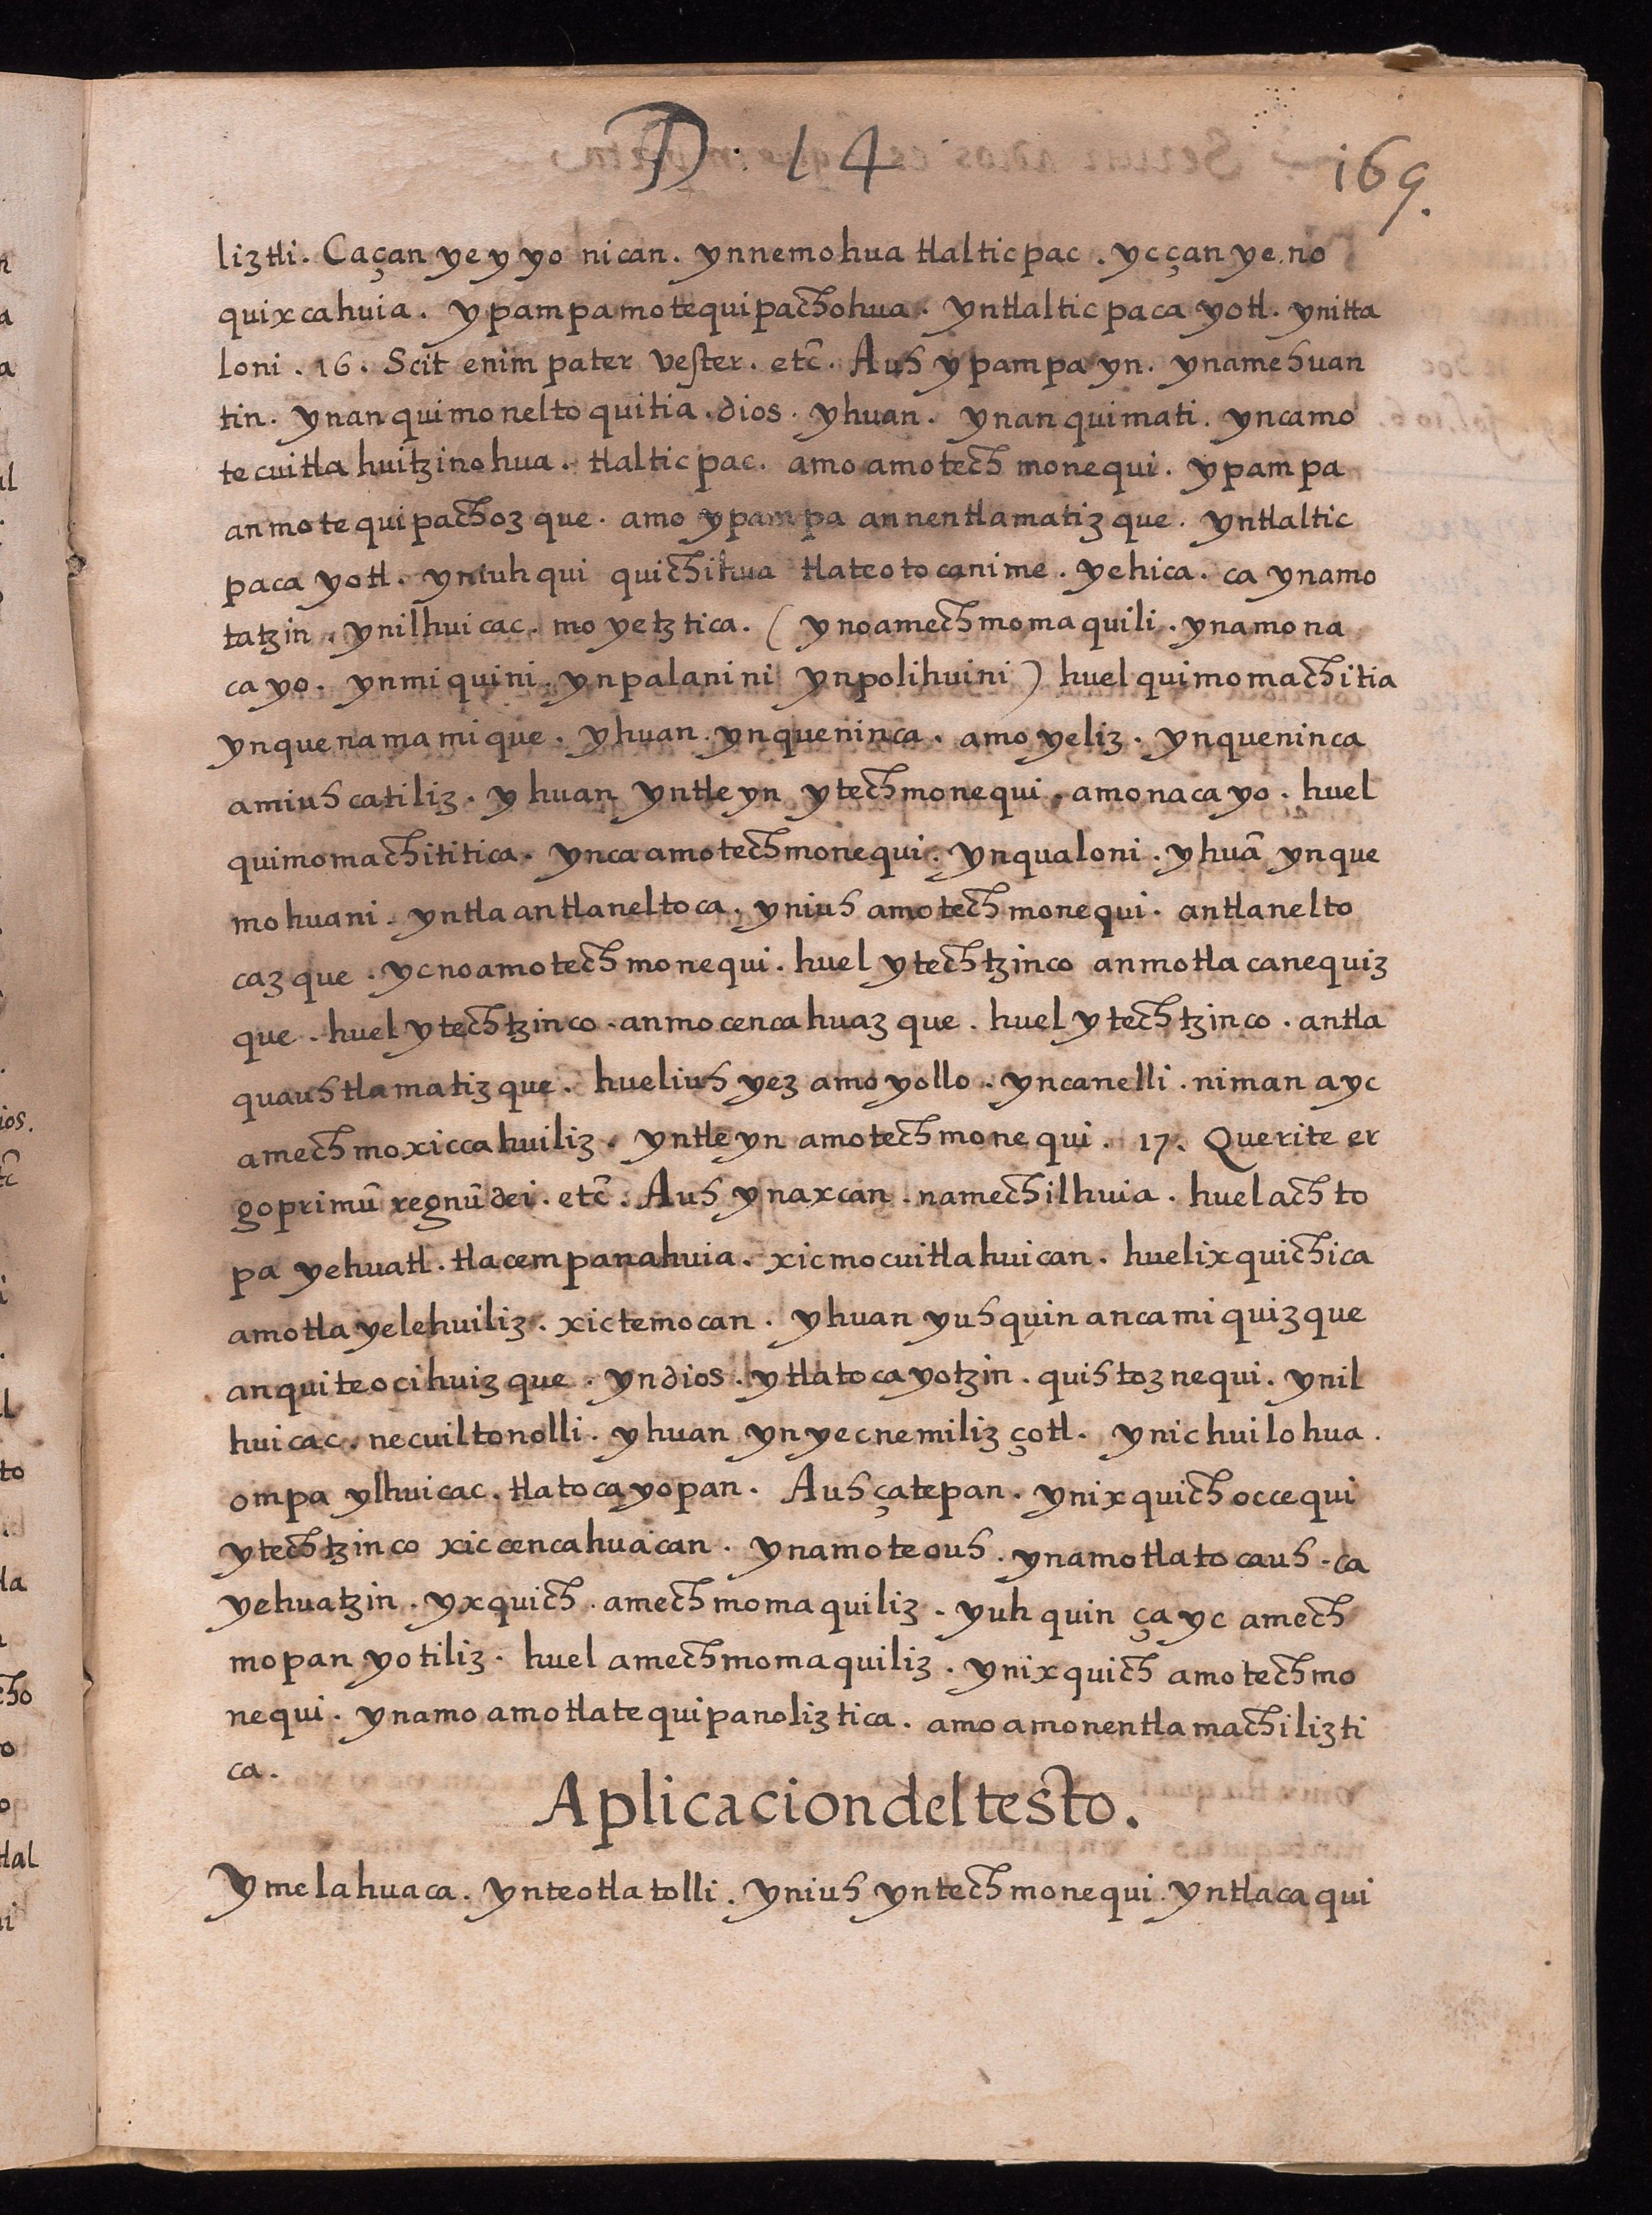 D. 14
169.
liztli. Caçan ye y yo nican. ynnemohua tlalticpac. ycçan ye no
quixcahuia. ypampa motequipachohua. yntlalticpacayotl. ynitta
loni. 16. Scit enim pater vester. etc̃. Auh ypampa yn. yn amehuan
tin. ynanquimoneltoquitia. dios. yhuan. ynanquimati. yncamo
tecuitlahuitzinohua. tlalticpac. amo amotech monequi. ypampa
anmotequipachozque. amo ypampa annentlamatizque. yntlaltic
pacayotl. yniuhqui quichihua tlateotocanime. yehica. ca ynamo
tatzin. ynilhuicac. moyetztica. (ynoamechmomaquili. ynamona
cayo. ynmiquini. ynpalanini ynpolihuini) huel quimomachitia
ynquenamamique. yhuan ynqueninca. amoyeliz. ynqueninca
amiuhcatiliz. yhuan yntleyn ytechmonequi. amonacayo. huel
quimomachititica. ynca amotechmonequi. ynqualoni. yhuã ynque
mohuani. yntla antlaneltoca. yniuh amotech monequi. antlanelto
cazque. ycnoamotechmonequi. huel ytechtzinco anmotlacanequiz
que. huel ytechtzinco. anmocencahuazque. huel ytechtzinco. antla
quauhtlamatizque. hueliuh yez amoyollo. yncanelli. niman ayc
amechmoxiccahuiliz. yntleyn amotechmonequi. 17. Querite er
go primũ regnũ dei. etc̃. Auh ynaxcan. namechilhuia. huel achto
pa yehuatl. tlacempanahuia. xicmocuitlahuican. huelixquichica
amotlayelehuiliz. xictemocan. yhuan yuhquin ancamiquizque
anquiteocihuizque. yndios. ytlatocayotzin. quihtoznequi. ynil
huicac. necuiltonolli. yhuan ynyecnemilizçotl. ynichuilohua.
ompa ylhuicac. tlatocayopan. Auh çatepan. ynixquich occequi
ytechtzinco xiccencahuacan. ynamoteouh. ynamotlatocauh. ca
yehuatzin. yxquich. amechmomaquiliz. yuhquin çayc amech
mopanyotiliz. huel amechmomaquiliz. ynixquich amotechmo
nequi. ynamo amotlatequipanoliztica. amo amonentlamachilizti
ca.
Aplicacion del testo.
Ymelahuaca. ynteotlatolli. yniuh yntechmonequi. yntlacaqui